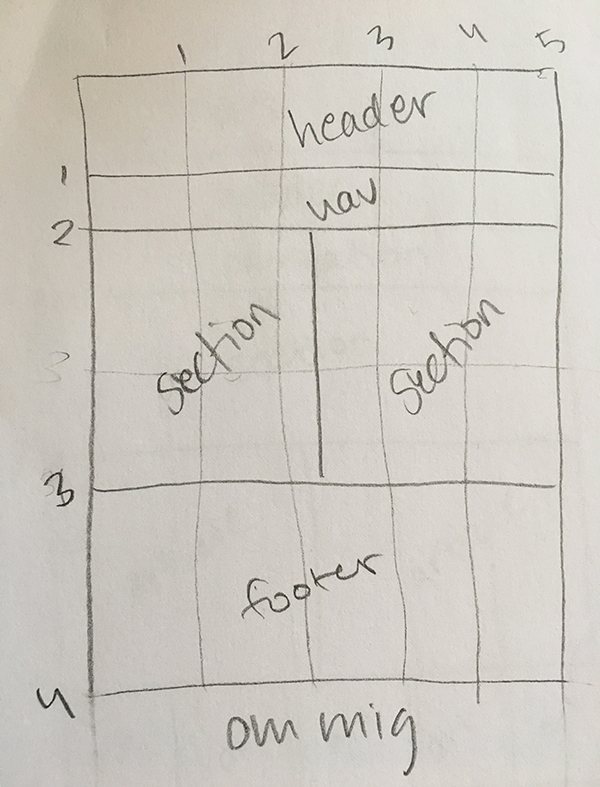 1 2 3 4 5
header
1
nav
2
section section
3
3
footer
4
om mig